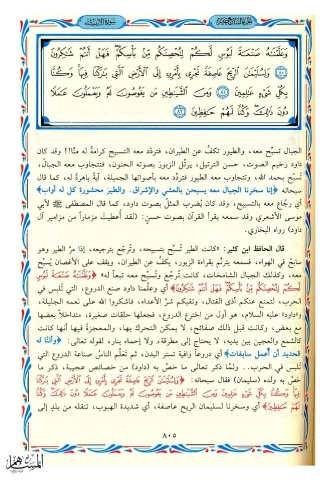 سورة الأنبياء
وَعَلَّمْنَاهُ صَنْعَةَ لَبُوسٍ لَّكُمْ لِتُحْصِنَكُم مِّن بَأْسِكُمْ فَهَلْ أَنتُمْ شَاكِرُونَ
﴿٨٠﴾ وَلِسُلَيْمَانَ الرِّيحَ عَاصِفَةً تَجْرِي بِأَمْرِهِ إِلَى الْأَرْضِ الَّتِي بَارَكْنَا فِيهَا وَكُنَّا
بِكُلِّ شَيْءٍ عَالِمِينَ ﴿٨١﴾ وَمِنَ الشَّيَاطِينِ مَن يَغُوصُونَ لَهُ وَيَعْمَلُونَ عَمَلًا
دُونَ ذَلِكَ وَكُنَّا لَهُمْ حَافِظِينَ ﴿٨٢﴾
الجبال تسبّح معه، والطيور تكفّ عن الطيران، فتردّد معه التسبيح كرامةً له منّا!! وقد كان
داود رخيم الصوت، حسن الترتيل، يرتّل الزبور بصوته الحنون، فتتجاوب معه الجبال،
تسبّح بحمد الله، وتتجاوب معه الطيور فتردّد معه بأصواتها الجميلة، آيةً باهرة له، كما قال
سبحانه ﴿إنا سخرنا الجبال معه يسبحن بالعشي والإشراق. والطير محشورة كل له أواب﴾
أي رجّاع معه بالتسبيح، وقد كان يُضرب المثل بصوت داود، كما قال المصطفى ﷺ لأبي
موسى الأشعري وقد سمعه يقرأ القرآن بصوت حسن: (لقد أُعطيتَ مزماراً من مزامير آل
داود) رواه البخاري.
قال الحافظ ابن كثير: «كانت الطير تُسبّح بتسبيحه، وتُرجّع بترجيعه، إذا مرّ الطير وهو
سابحٌ في الهواء، فسمعه يترنّم بقراءة الزبور، يكفّ عن الطيران، ويقف على الأغصان يُسبّح
معه، وكذلك الجبال الشامخات، كانت تُرجّع وتُسبّح معه تبعاً له» ﴿وَعَلَّمْنَاهُ صَنْعَةَ لَبُوسٍ
لَّكُمْ لِتُحْصِنَكُم مِّن بَأْسِكُمْ فَهَلْ أَنتُمْ شَاكِرُونَ﴾ أي وعلّمنا داود صنع الدروع، التي تُلبس في
الحرب، لتمنع عنكم أذى القتال، وتقيكم شرّ الأعداء، فاشكروا الله على نعمه الجليلة،
و(داود) عليه السلام، هو أول من اخترع الدروع، فجعلها حلقات صغيرة، متداخلاً بعضها
مع بعض، وكانت قبل ذلك صفائح، لا يمكن التحرك بها، والمعجزة فيها أنها كانت
كالشمع والعجين بين يديه، لا يحتاج إلى مطرقة، ولا إحماء بنار، لقوله تعالى: ﴿وألنّا له
الحديد أن اعمل سابغات﴾ أي دروعاً واقية تستر البدن، ثم تعلّم الناسُ صناعة الدروع التي
تُلبس في الحرب.. ولمّا ذكر تعالى ما خصّ به (داود) من خصائص عجيبة، ذكر ما
خصّ به ولده (سليمان) فقال سبحانه: ﴿وَلِسُلَيْمَانَ الرِّيحَ عَاصِفَةً تَجْرِي بِأَمْرِهِ إِلَى الْأَرْضِ الَّتِي بَارَكْنَا
فِيهَا وَكُنَّا بِكُلِّ شَيْءٍ عَالِمِينَ وَمِنَ الشَّيَاطِينِ مَن يَغُوصُونَ لَهُ وَيَعْمَلُونَ عَمَلًا دُونَ ذَلِكَ وَكُنَّا
لَهُمْ حَافِظِينَ﴾ أي وسخرنا لسليمان الريح عاصفة، أي شديدة الهبوب، تنقله من بلدٍ إلى
٨٠٥